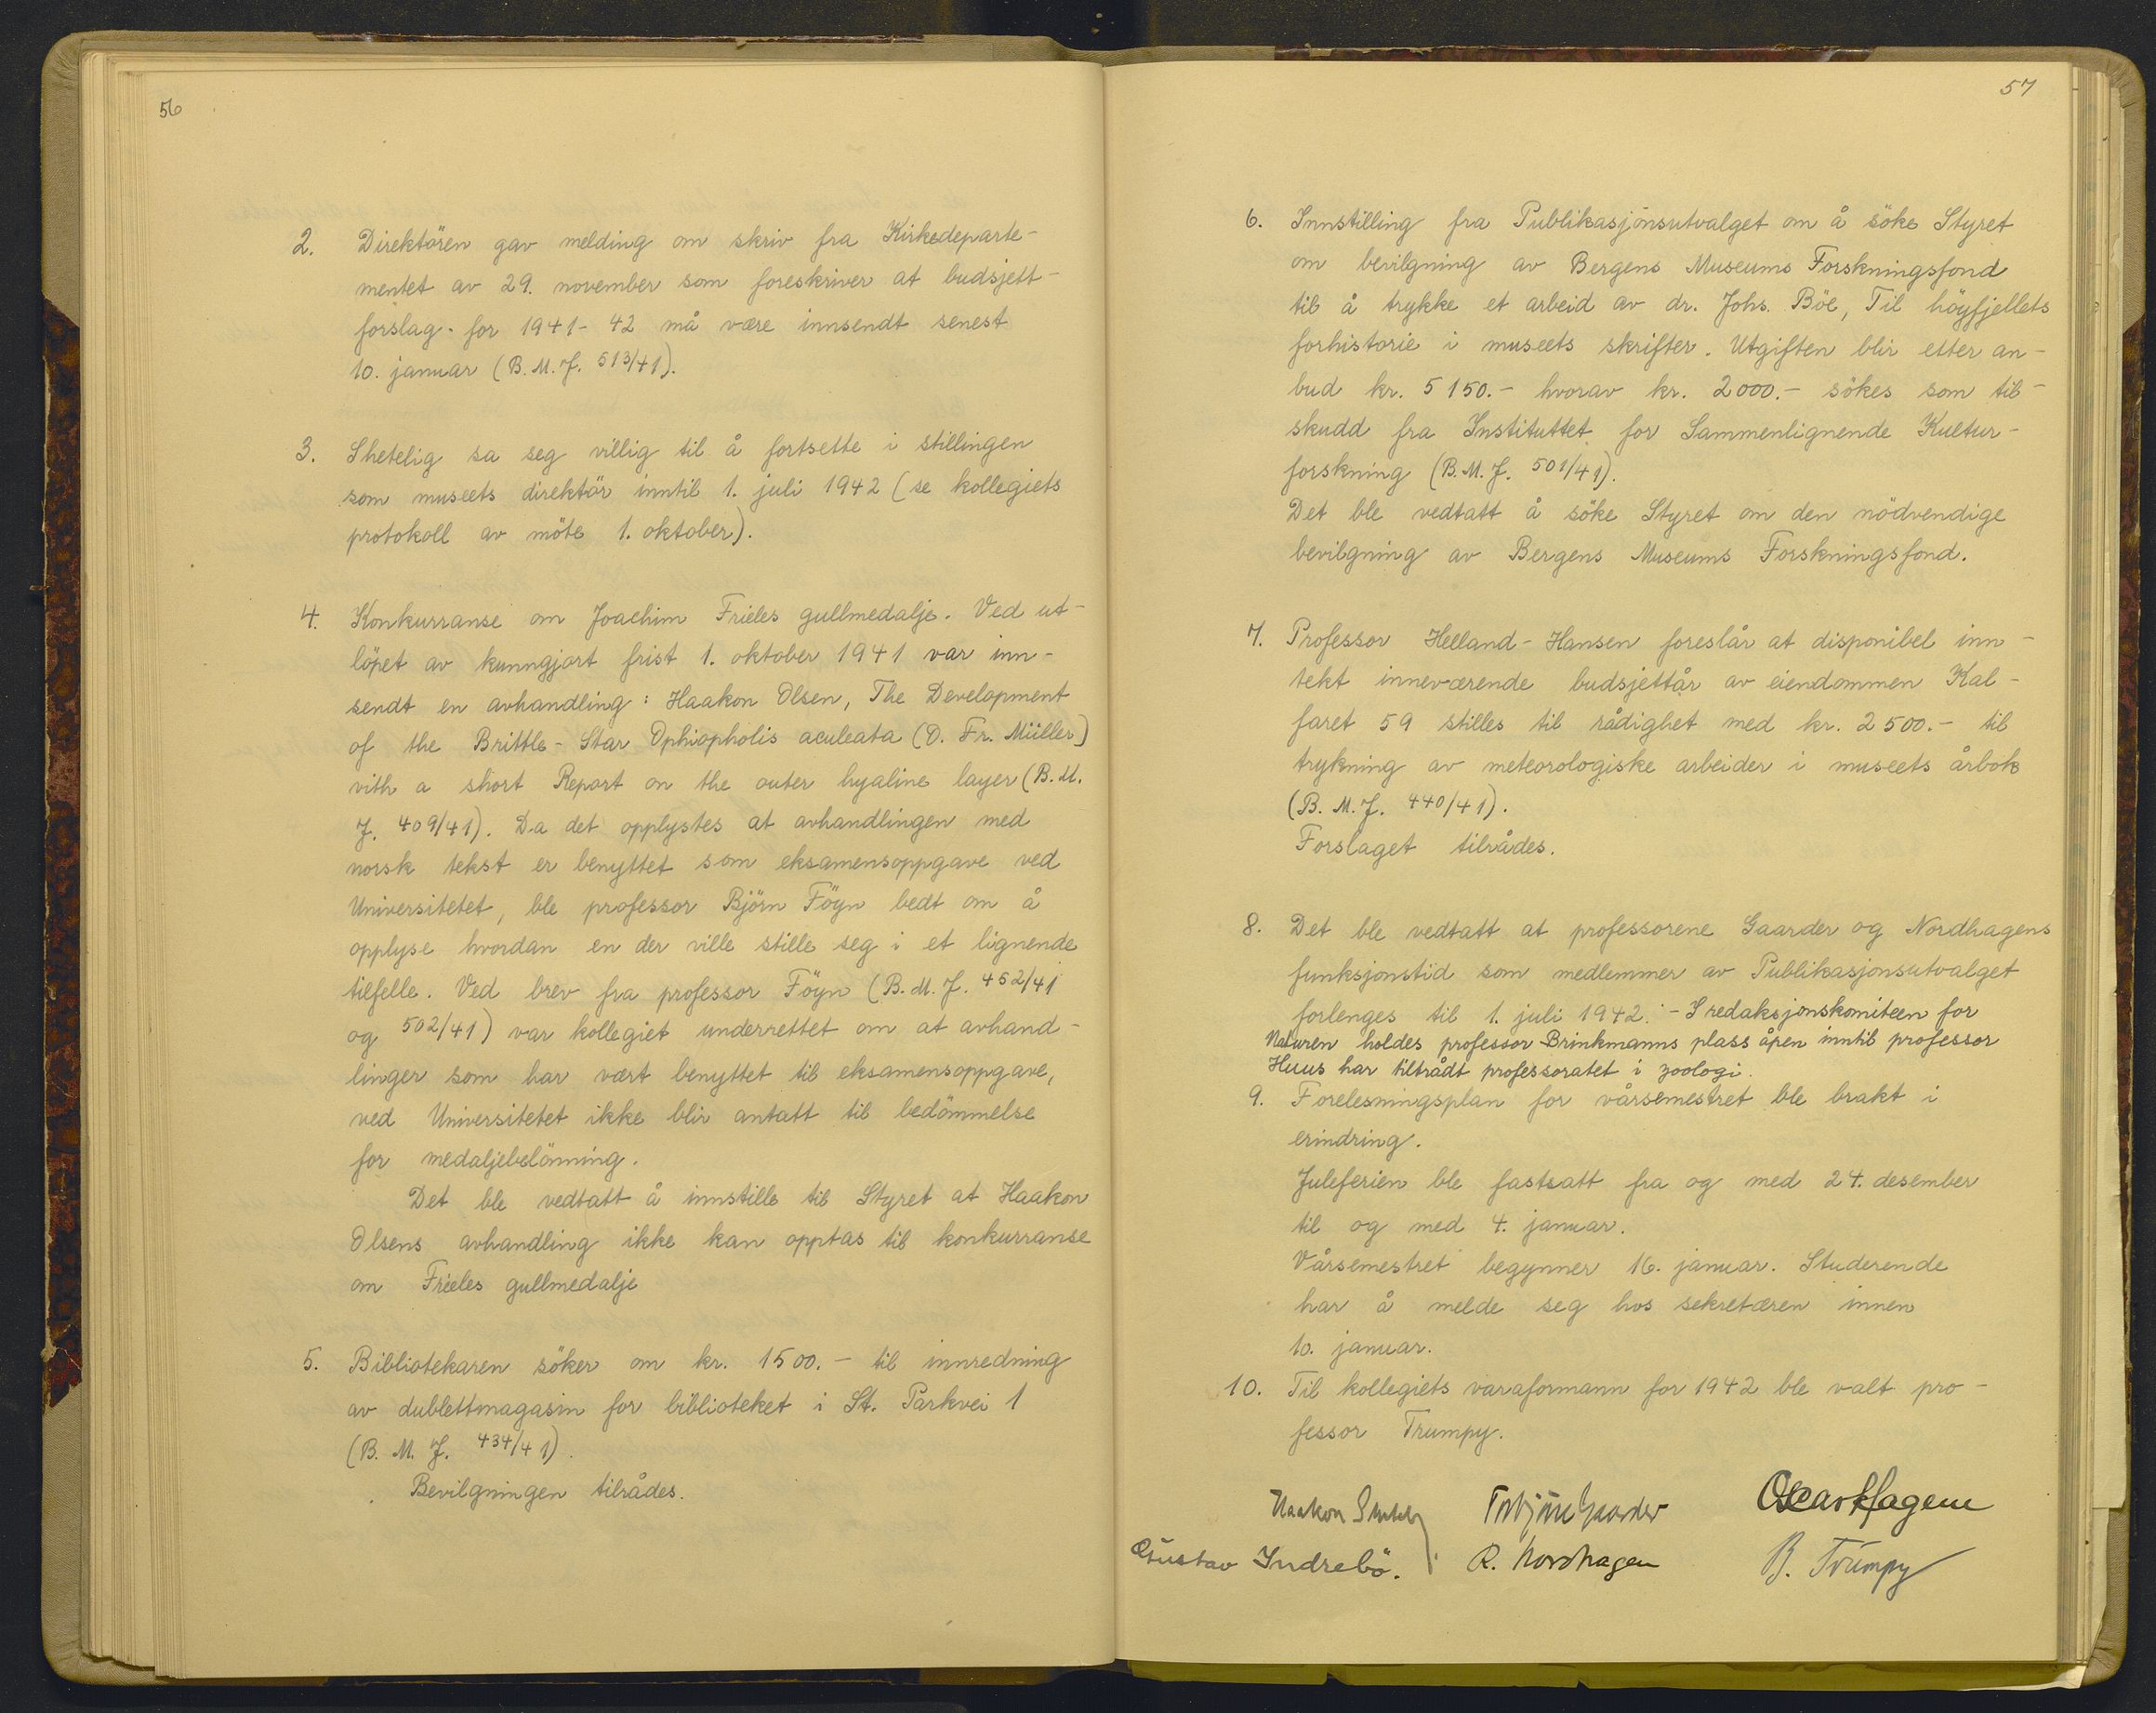 56
2. Direktören gav melding om skriv fra Kirkedeparte-
mentet av 29. november som foreskriver at budsjett-
forslag for 1941-42 må være innsendt senest
10. januar (B.M.J. 513/41).
3. Shetelig sa seg villig til å fortsette i stillingen
som museets direktör inntil 1. juli 1942 (se kollegiets
protokoll av möte 1. oktober).
4. Konkurranse om Joachim Frieles gullmedalje. Ved ut-
löpet av kunngjort frist 1. oktober 1941 var inn-
sendt en avhandling: Haakon Olsen, The Development
of the Brittle-Star Ophiopholis aculeata (O. Fr. Müller)
vith a short Report on the outer hyaline layer (B.M.
J. 409/41). Da det opplystes at avhandlingen med
norsk tekst er benyttet som eksamensoppgave ved
Universitetet, ble professor Björn Föyn bedt om å
opplyse hvordan en der ville stille seg i et lignende
tilfelle. Ved brev fra professor Föyn (B.M.J. 452/41
og 502/41) var kollegiet underrettet om at avhand-
linger som har vært benyttet til eksamensoppgave,
ved Universitetet ikke blir antatt til bedömmelse
for medaljebelönning.
Det ble vedtatt å innstille til Styret at Haakon
Olsens avhandling ikke kan opptas til konkurranse
om Frieles gullmedalje
5. Bibliotekaren söker om kr. 1500.- til innredning
av dublettmagasin for biblioteket i St. Parkvei 1
(B. M. J. 434/41).
Bevilgningen tilrådes.
57
6. Innstilling fra Publikasjonsutvalget om å söke Styret
om bevilgning av Bergens Museums Forskningsfond
til å trykke et arbeid av dr. Johs. Böe, Til höyfjellets
forhistorie i museets skrifter. Utgiften blir etter an-
bud kr. 5150.- hvorav kr. 2000.- sökes som til-
skudd fra Instituttet for Sammenlignende Kultur-
forskning (B.M.J. 501/41).
Det ble vedtatt å söke Styret om den nödvendige
bevilgning av Bergens Museums Forskningsfond.
7. Professor Helland-Hansen foreslår at disponibel inn-
tekt inneværende budsjettår av eiendommen Kal-
faret 59 stilles til rådighet med kr. 2500.- til
trykning av meteorologiske arbeider i museets årbok
(B. M. J. 440/41).
Forslaget tilrådes.
8. Det ble vedtatt at professorene Gaarder og Nordhagens
funksjonstid som medlemmer av Publikasjonsutvalget
forlenges til 1. juli 1942. - I redaksjonskomiteen for
Naturen holdes professor Brinkmanns plass åpen inntil professor
Huus har tiltrådt professoratet i zoologi.
9. Forelesningsplan for vårsemestret ble brakt i
erindring.
Juleferien ble fastsatt fra og med 24. desember
til og med 4. januar.
Vårsemestret begynner 16. januar. Studerende
har å melde seg hos sekretæren innen
10. januar.
10. Til kollegiets varaformann for 1942 ble valt pro-
fessor Trumpy.
Haakon Shetelig Torbjörn Gaarder Oscar Hagem
Gustav Indrebö. R. Nordhagen B. Trumpy